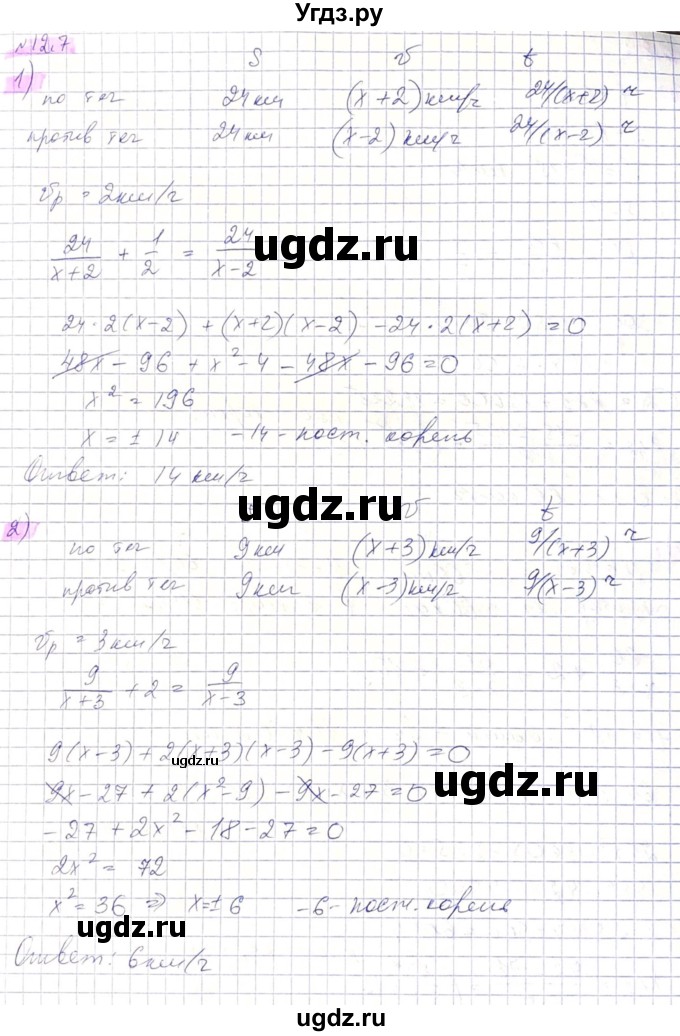 Угдз.ру
№12.7
1) S v t
по теч 24 км (x+2) км/ч 24/(x+2) ч
против теч 24 км (x-2) км/ч 24/(x-2) ч
vр = 2 км/ч
24/(x+2) + 1/2 = 24/(x-2)
ugdz.ru
24·2(x-2) + (x+2)(x-2) - 24·2(x+2) = 0
48x - 96 + x² - 4 - 48x - 96 = 0
x² = 196
x = ±14 -14 - пост. корень
Ответ: 14 км/ч
ugdz.ru ugdz.ru
2) v t
по теч 9 км (x+3) км/ч 9/(x+3) ч
против теч 9 км (x-3) км/ч 9/(x-3) ч
vр = 3 км/ч
9/(x+3) + 2 = 9/(x-3)
9(x-3) + 2(x+3)(x-3) - 9(x+3) = 0
ugdz.ru
9x - 27 + 2(x²-9) - 9x - 27 = 0
ugdz.ru
-27 + 2x² - 18 - 27 = 0
2x² = 72
x² = 36 ⇒ x = ±6 -6 - пост. корень
ugdz.ru
Ответ: 6 км/ч
ugdz.ru